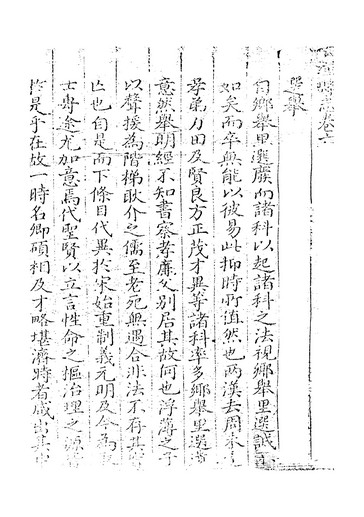 縣志卷六
選舉
自鄉舉里選廢而諸科以起諸科之法視鄉舉里選誠
如矣而卒無能以彼易此抑時所值然也兩漢去周未
孝弟力田及賢良方正茂才異等諸科率多鄉舉里選
意然舉明經不知書察孝廉父別居其故何也浮薄之
以聲援為階梯耿介之儒至老死無遇合非法不有其
亡也自是而下條目代異於宋始重制義元明及今為
士專途尤加意焉代聖賢以立言性命之樞治理之源
於是乎在故一時名卿碩相及才略堪濟時者咸出其